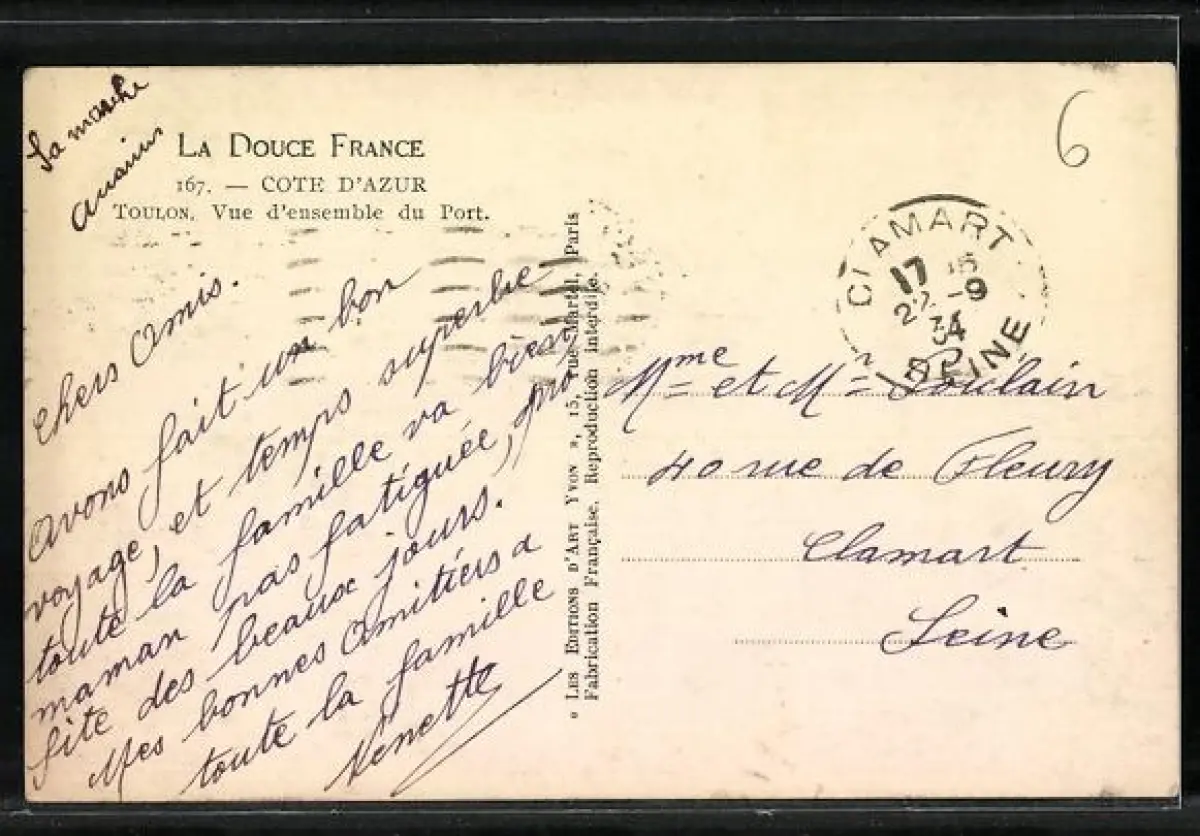 La marche
LA DOUCE FRANCE
167. — COTE D'AZUR
TOULON. Vue d'ensemble du Port.
Chers Amis.
avons fait un bon
voyage, et temps superbe
toute la famille va bien
maman pas fatiguée, pro
fite des beaux jours.
Mes bonnes amitiers a
toute la famille
Ninette
« LES EDITIONS D'ART YVON », 15, rue Martel, Paris
Fabrication Française. Reproduction interdite.
6
CLAMART
17
22 -9
34
SEINE
Mme et Mr Poulain
40 rue de Fleury
Clamart
Seine